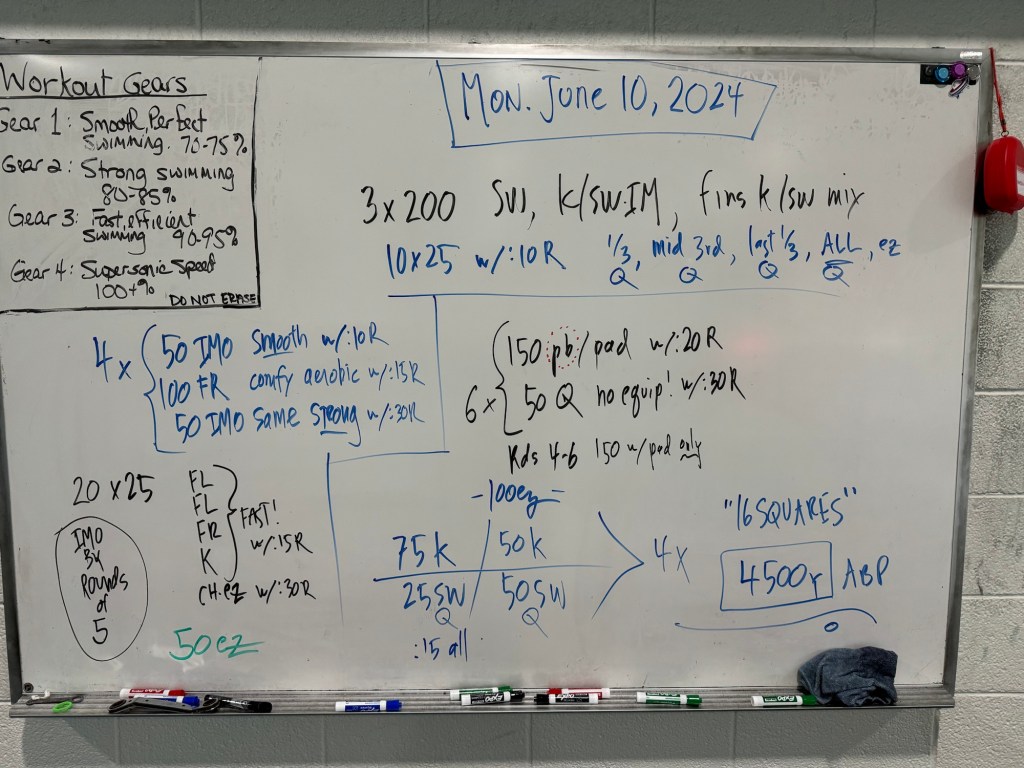 Workout Gears
Gear 1: Smooth, Perfect
swimming. 70-75%
Gear 2: Strong swimming
80-85%
Gear 3: Fast, efficient
swimming 90-95%
Gear 4: Supersonic Speed
100+%
DO NOT ERASE
MON. June 10, 2024
3x200 K/SW IM, fins K/sw mix
10x25 w/:10R 1/3, mid 3rd, last 1/3, ALL, ez
Q Q Q Q
4x
50 IMO smooth w/:10R
100 FR comfy aerobic w/:15R
50 IMO same strong w/:30R
6x
150 pb/pad w/:20R
50 Q no equip! w/:30R
Rds 4-6 150 w/pad only
20x25
FL
FL
FR
K
CH.ez w/:30R
FAST!
w/:15R
IMO
3x
ROUNDS
of
5
50ez
-100ez-
75k / 50k
25SW 50SW
Q Q
:15 all
4x
"16 SQUARES"
4500y ABP
EXPO
EXPO
EXPO
EXPO